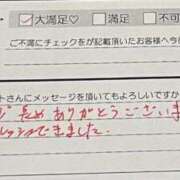 ☑大満足♡ □満足 □不可
ご不満にチェックをが記載頂いたお客様へ今
トさんにメッセージを頂いてもよろしいですか
長めありがとうございま
できました。